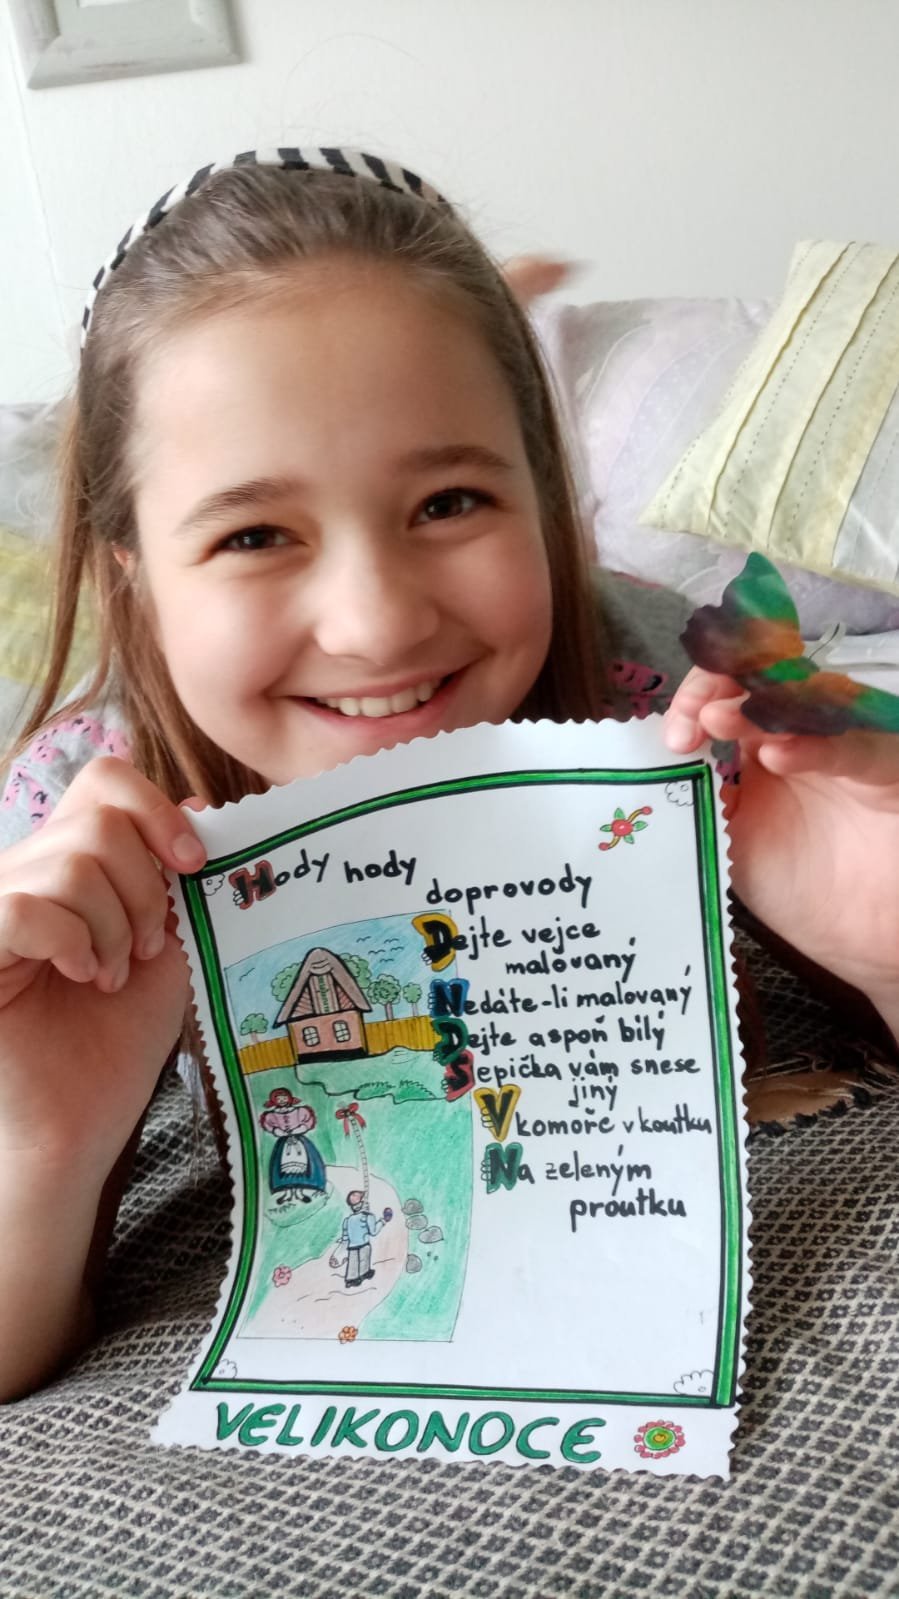 Hody hody
doprovody
Dejte vejce
malovaný
Nedáte-li malovaný
Dejte aspoň bílý
Slepička vám snese
jiný
V komoře v koutku
Na zeleným
proutku
VELIKONOCE